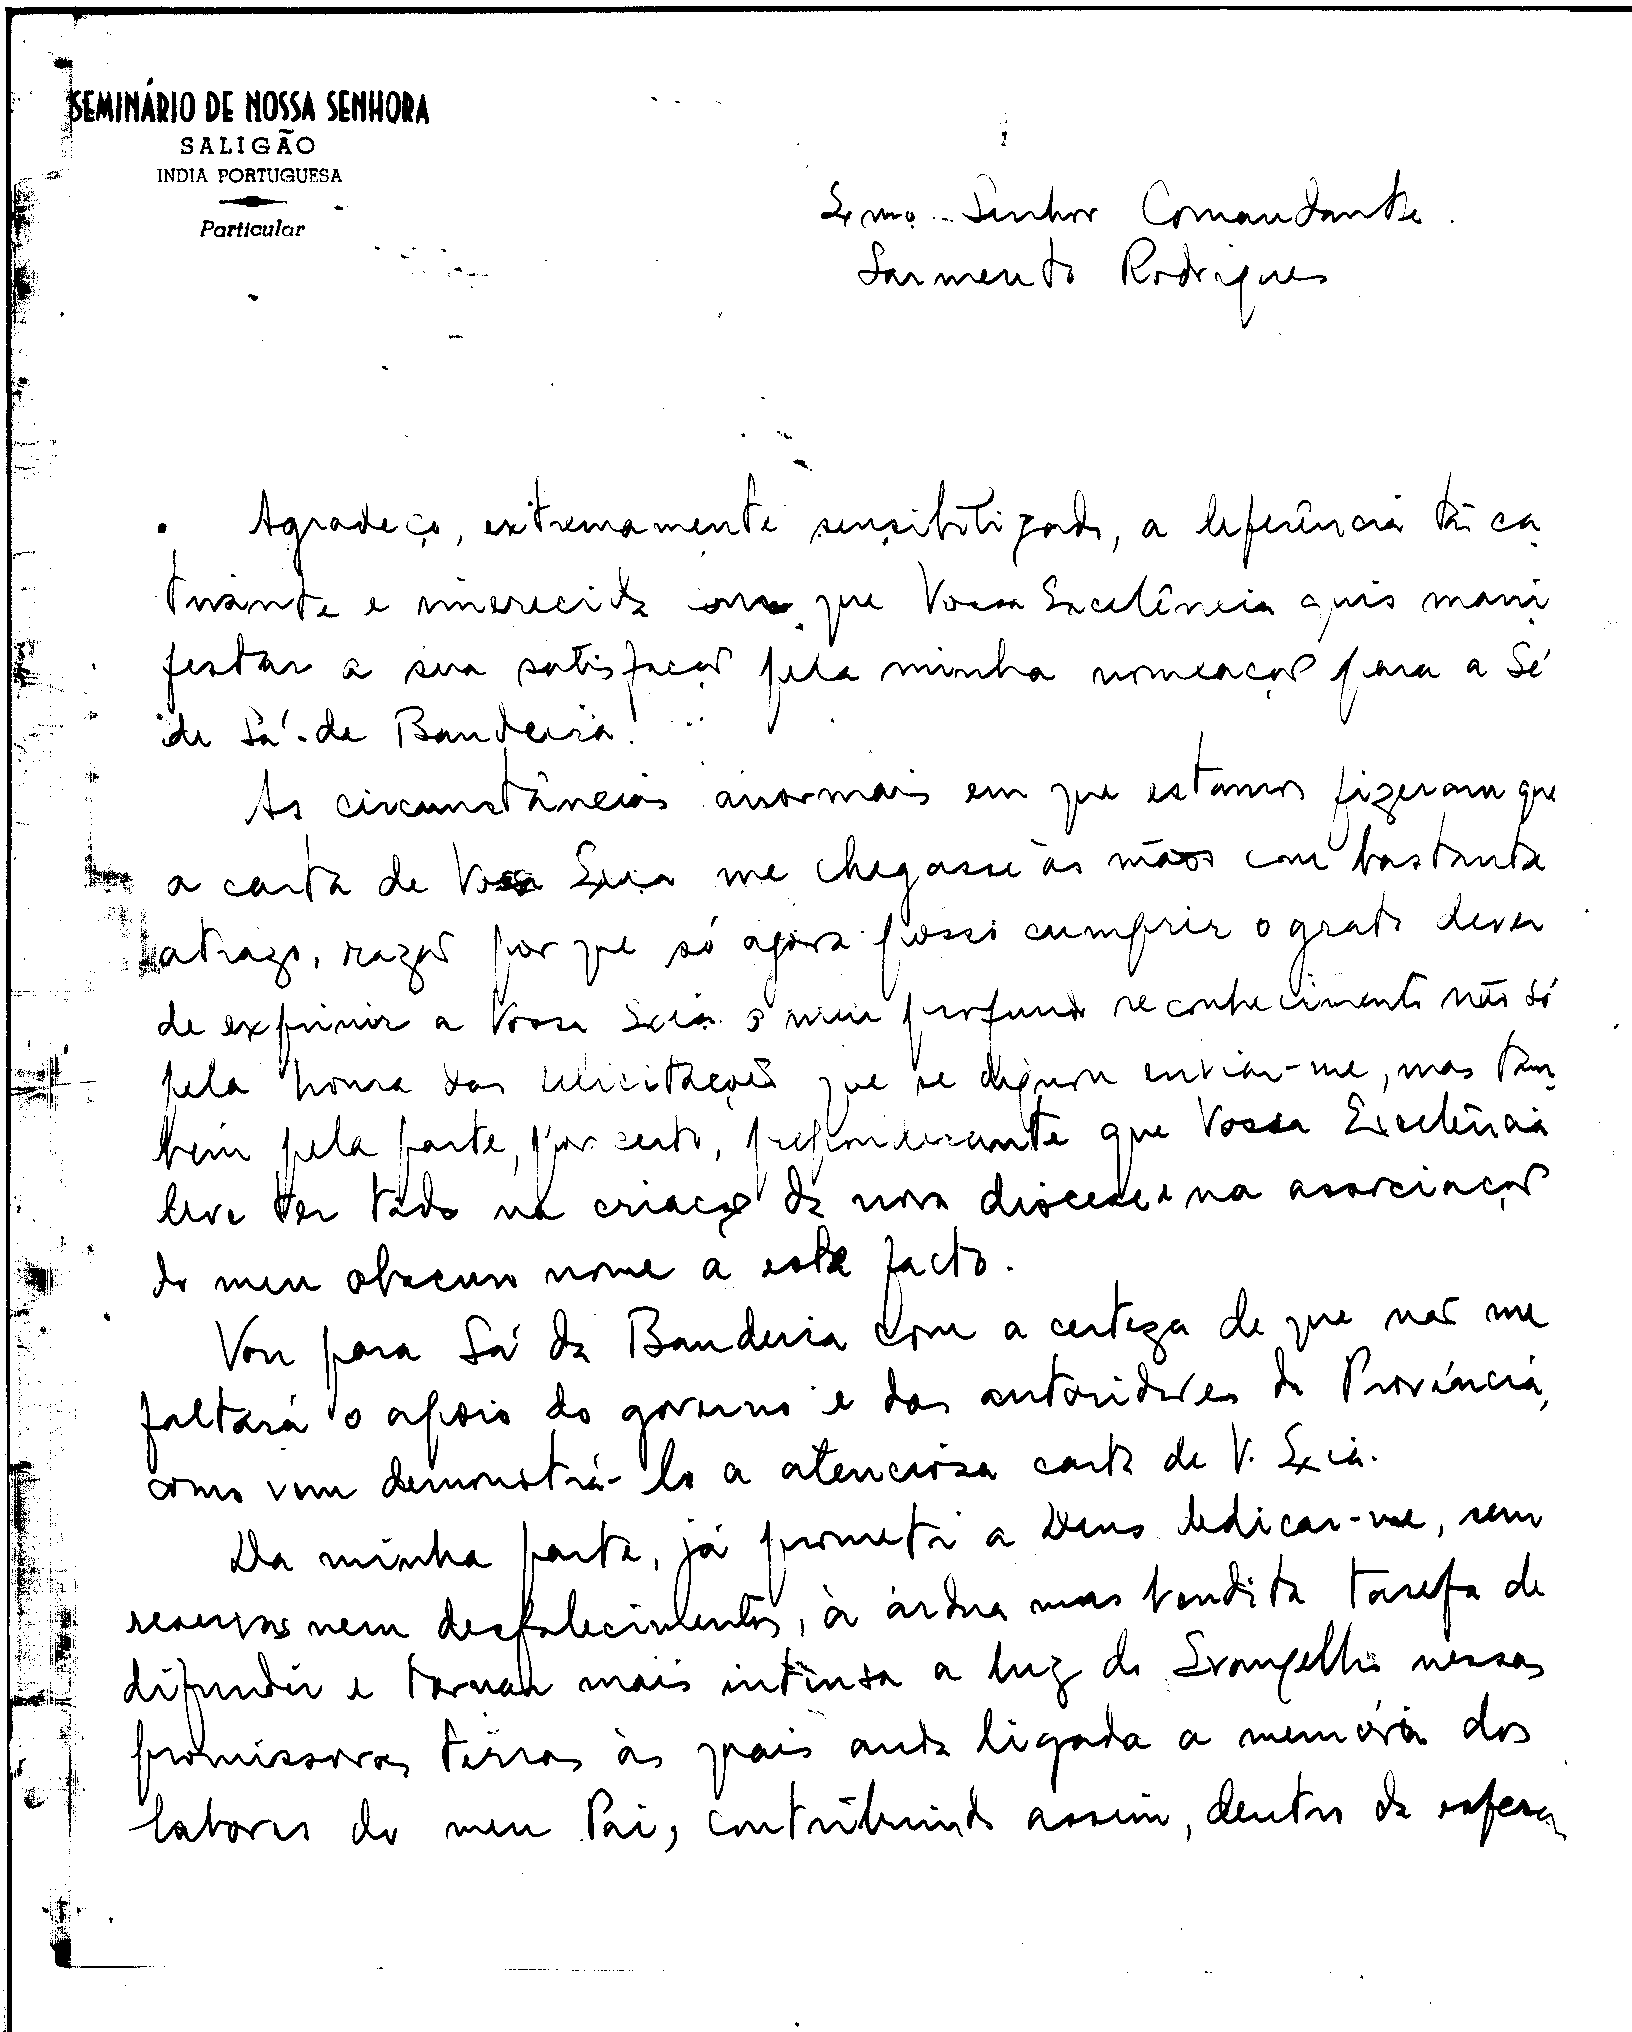 SEMINÁRIO DE NOSSA SENHORA
SALIGÃO
INDIA PORTUGUESA
Particular
Exmo. Senhor Comandante
Sarmento Rodrigues
Agradeço, extremamente sensibilizado, a deferência tão ca
tivante e imerecida que Vossa Excelência quis mani
festar a sua satisfação pela minha nomeação para a Sé
de Sá da Bandeira.
As circunstâncias anormais em que estamos fizeram que
a carta de Vossa Excia me chegasse às mãos com bastante
atrazo, razão por que só agora posso cumprir o grato dever
de exprimir a Vossa Excia o meu profundo reconhecimento não só
pela honra das felicitações que se dignou enviar-me, mas tam
bém pela parte, por certo, preponderante que Vossa Excelência
deve ter tido na criação da nova diocese e na associação
do meu obscuro nome a este facto.
Vou para Sá da Bandeira com a certeza de que não me
faltará o apoio do governo e das autoridades da Província,
como vem demonstrá-lo a atenciosa carta de V. Excia.
Da minha parte, já prometi a Deus dedicar-me, sem
reservas nem desfalecimentos, à árdua mas bendita tarefa de
difundir e tornar mais intensa a luz do Evangelho nessas
promissoras terras às quais anda ligada a memória dos
labores do meu Pai, contribuindo assim, dentro da esfera